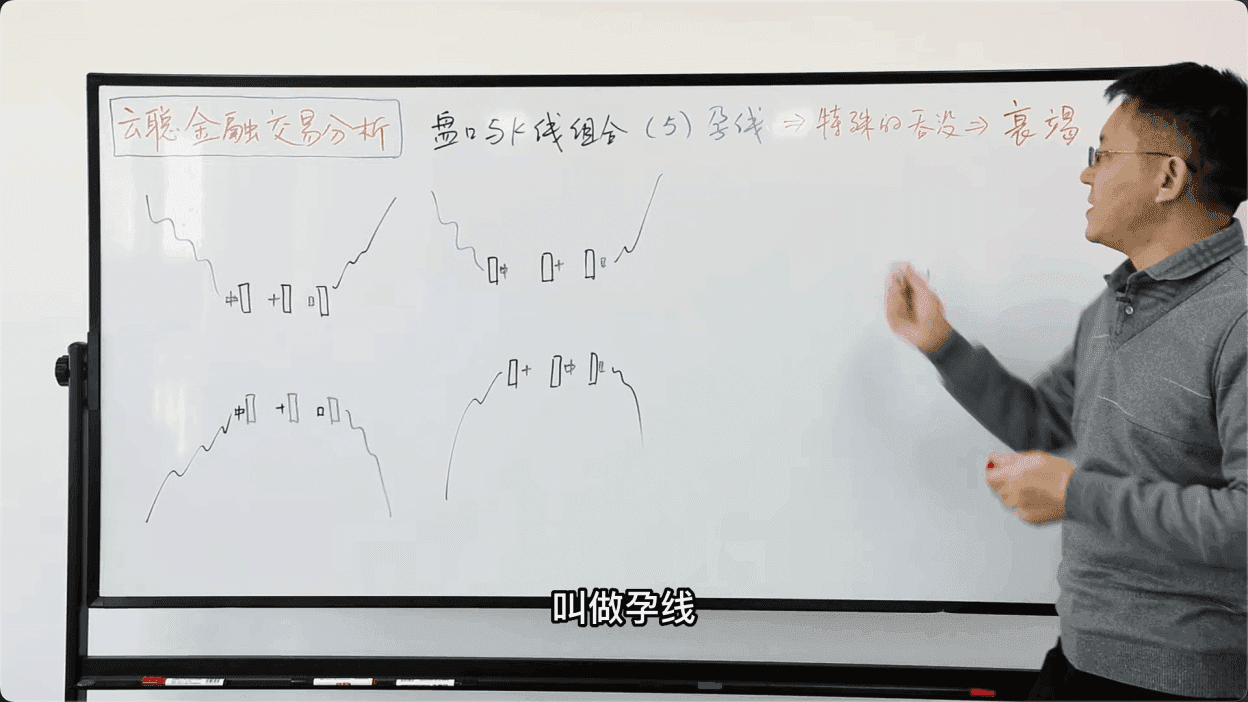 云聪金融交易分析
盘口与K线组合（5）孕线⇒特殊的吞没⇒衰竭
叫做孕线